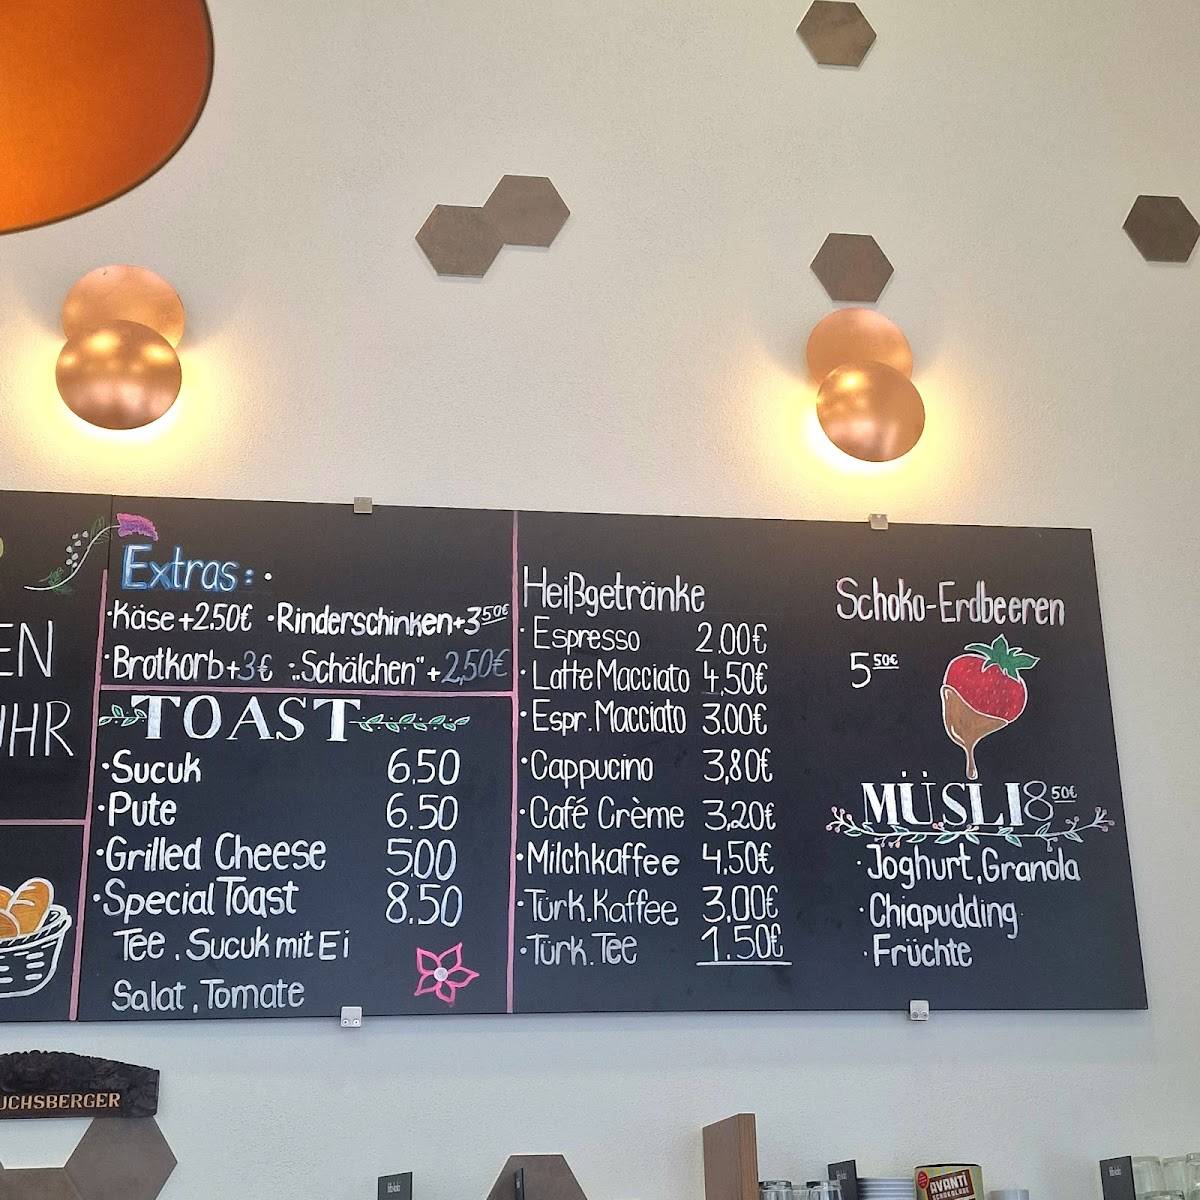 EN
UHR
Extras:
·Käse+2.50€ ·Rinderschinken+3 50€
·Brotkorb+3€ :„Schälchen"+2,50€
TOAST
·Sucuk 6.50
·Pute 6.50
·Grilled Cheese 5.00
·Special Toast 8.50
Tee, Sucuk mit Ei
Salat, Tomate
Heißgetränke
· Espresso 2.00€
· Latte Macciato 4,50€
· Espr. Macciato 3.00€
· Cappucino 3,80€
· Café Crème 3,20€
· Milchkaffee 4,50€
· Türk. Kaffee 3,00€
· Türk. Tee 1.50€
Schoko-Erdbeeren
5 50€
MÜSLI 8 50€
· Joghurt, Granola
· Chiapudding
· Früchte
UCHSBERGER
AVANTI
SCHOKOLADE